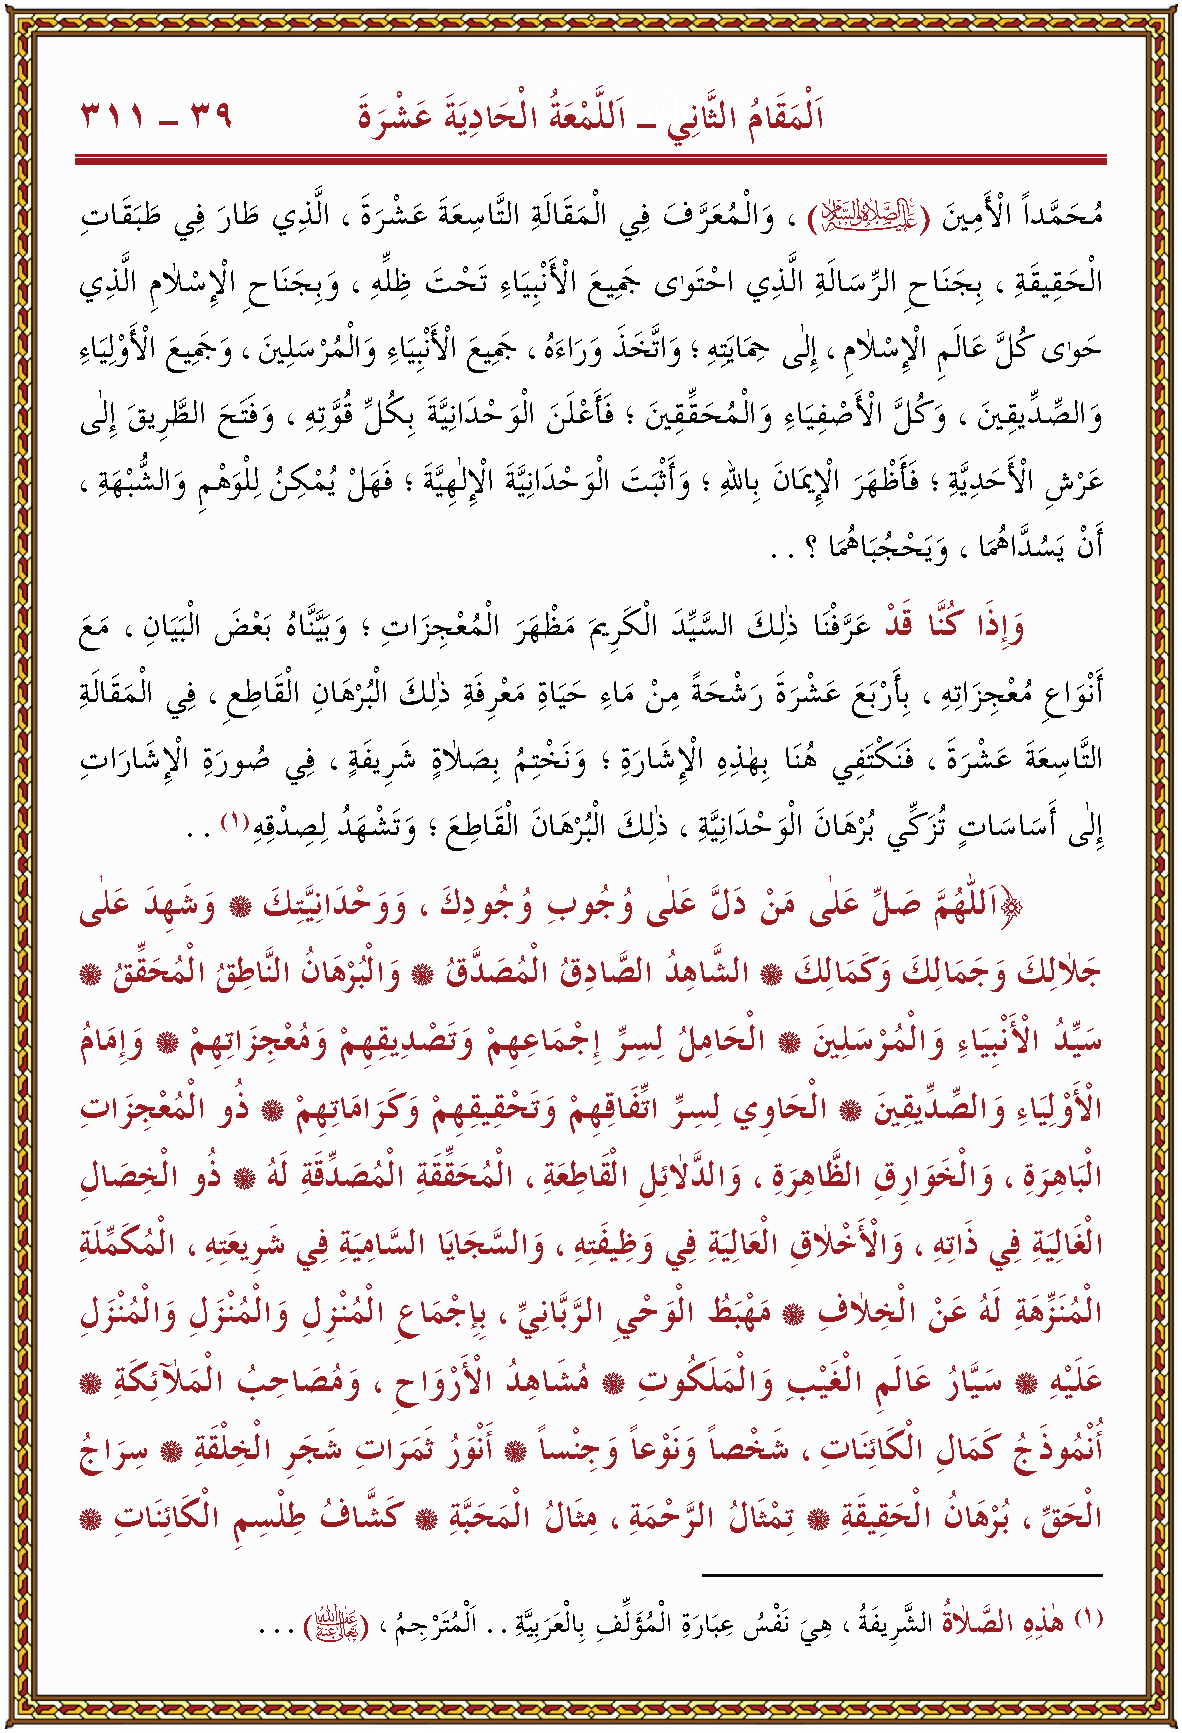 اَلْمَقَامُ الثَّانِي – اَللَّمْعَةُ الْحَادِيَةَ عَشْرَةَ ٣٩ – ٣١١
مُحَمَّداً الْأَمِينَ (عَلَيْهِ الصَّلَاةُ وَالسَّلَامُ) ، وَالْمُعَرَّفَ فِي الْمَقَالَةِ التَّاسِعَةَ عَشْرَةَ ، الَّذِي طَارَ فِي طَبَقَاتِ
الْحَقِيقَةِ ، بِجَنَاحِ الرِّسَالَةِ الَّذِي احْتَوٰى جَمِيعَ الْأَنْبِيَاءِ تَحْتَ ظِلِّهِ ، وَبِجَنَاحِ الْإِسْلَامِ الَّذِي
حَوٰى كُلَّ عَالَمِ الْإِسْلَامِ ، إِلٰى حِمَايَتِهِ ؛ وَاتَّخَذَ وَرَاءَهُ ، جَمِيعَ الْأَنْبِيَاءِ وَالْمُرْسَلِينَ ، وَجَمِيعَ الْأَوْلِيَاءِ
وَالصِّدِّيقِينَ ، وَكُلَّ الْأَصْفِيَاءِ وَالْمُحَقِّقِينَ ؛ فَأَعْلَنَ الْوَحْدَانِيَّةَ بِكُلِّ قُوَّتِهِ ، وَفَتَحَ الطَّرِيقَ إِلٰى
عَرْشِ الْأَحَدِيَّةِ ؛ فَأَظْهَرَ الْإِيمَانَ بِاللّٰهِ ؛ وَأَثْبَتَ الْوَحْدَانِيَّةَ الْإِلٰهِيَّةَ ؛ فَهَلْ يُمْكِنُ لِلْوَهْمِ وَالشُّبْهَةِ ،
أَنْ يَسُدَّاهُمَا ، وَيَحْجُبَاهُمَا ؟ . .
وَإِذَا كُنَّا قَدْ عَرَّفْنَا ذٰلِكَ السَّيِّدَ الْكَرِيمَ مَظْهَرَ الْمُعْجِزَاتِ ؛ وَبَيَّنَّاهُ بَعْضَ الْبَيَانِ ، مَعَ
أَنْوَاعِ مُعْجِزَاتِهِ ، بِأَرْبَعَ عَشْرَةَ رَشْحَةً مِنْ مَاءِ حَيَاةِ مَعْرِفَةِ ذٰلِكَ الْبُرْهَانِ الْقَاطِعِ ، فِي الْمَقَالَةِ
التَّاسِعَةَ عَشْرَةَ ، فَنَكْتَفِي هُنَا بِهٰذِهِ الْإِشَارَةِ ؛ وَنَخْتِمُ بِصَلَاةٍ شَرِيفَةٍ ، فِي صُورَةِ الْإِشَارَاتِ
إِلٰى أَسَاسَاتٍ تُزَكِّي بُرْهَانَ الْوَحْدَانِيَّةِ ، ذٰلِكَ الْبُرْهَانَ الْقَاطِعَ ؛ وَتَشْهَدُ لِصِدْقِهِ(١) . .
﴿اَللّٰهُمَّ صَلِّ عَلٰى مَنْ دَلَّ عَلٰى وُجُوبِ وُجُودِكَ ، وَوَحْدَانِيَّتِكَ ۞ وَشَهِدَ عَلٰى
جَلَالِكَ وَجَمَالِكَ وَكَمَالِكَ ۞ الشَّاهِدُ الصَّادِقُ الْمُصَدَّقُ ۞ وَالْبُرْهَانُ النَّاطِقُ الْمُحَقِّقُ ۞
سَيِّدُ الْأَنْبِيَاءِ وَالْمُرْسَلِينَ ۞ الْحَامِلُ لِسِرِّ إِجْمَاعِهِمْ وَتَصْدِيقِهِمْ وَمُعْجِزَاتِهِمْ ۞ وَإِمَامُ
الْأَوْلِيَاءِ وَالصِّدِّيقِينَ ۞ الْحَاوِي لِسِرِّ اتِّفَاقِهِمْ وَتَحْقِيقِهِمْ وَكَرَامَاتِهِمْ ۞ ذُو الْمُعْجِزَاتِ
الْبَاهِرَةِ ، وَالْخَوَارِقِ الظَّاهِرَةِ ، وَالدَّلَائِلِ الْقَاطِعَةِ ، الْمُحَقِّقَةِ الْمُصَدِّقَةِ لَهُ ۞ ذُو الْخِصَالِ
الْغَالِيَةِ فِي ذَاتِهِ ، وَالْأَخْلَاقِ الْعَالِيَةِ فِي وَظِيفَتِهِ ، وَالسَّجَايَا السَّامِيَةِ فِي شَرِيعَتِهِ ، الْمُكَمِّلَةِ
الْمُنَزِّهَةِ لَهُ عَنْ الْخِلَافِ ۞ مَهْبَطُ الْوَحْيِ الرَّبَّانِيِّ ، بِإِجْمَاعِ الْمُنْزِلِ وَالْمُنْزَلِ وَالْمُنْزَلِ
عَلَيْهِ ۞ سَيَّارُ عَالَمِ الْغَيْبِ وَالْمَلَكُوتِ ۞ مُشَاهِدُ الْأَرْوَاحِ ، وَمُصَاحِبُ الْمَلَآئِكَةِ ۞
أُنْمُوذَجُ كَمَالِ الْكَائِنَاتِ ، شَخْصاً وَنَوْعاً وَجِنْساً ۞ أَنْوَرُ ثَمَرَاتِ شَجَرِ الْخِلْقَةِ ۞ سِرَاجُ
الْحَقِّ ، بُرْهَانُ الْحَقِيقَةِ ۞ تِمْثَالُ الرَّحْمَةِ ، مِثَالُ الْمَحَبَّةِ ۞ كَشَّافُ طِلْسِمِ الْكَائِنَاتِ ۞
(١) هٰذِهِ الصَّلَاةُ الشَّرِيفَةُ ، هِيَ نَفْسُ عِبَارَةِ الْمُؤَلِّفِ بِالْعَرَبِيَّةِ . . اَلْمُتَرْجِمُ ، (عَفَا اللّٰهُ تَعَالٰى عَنْهُ) . . .